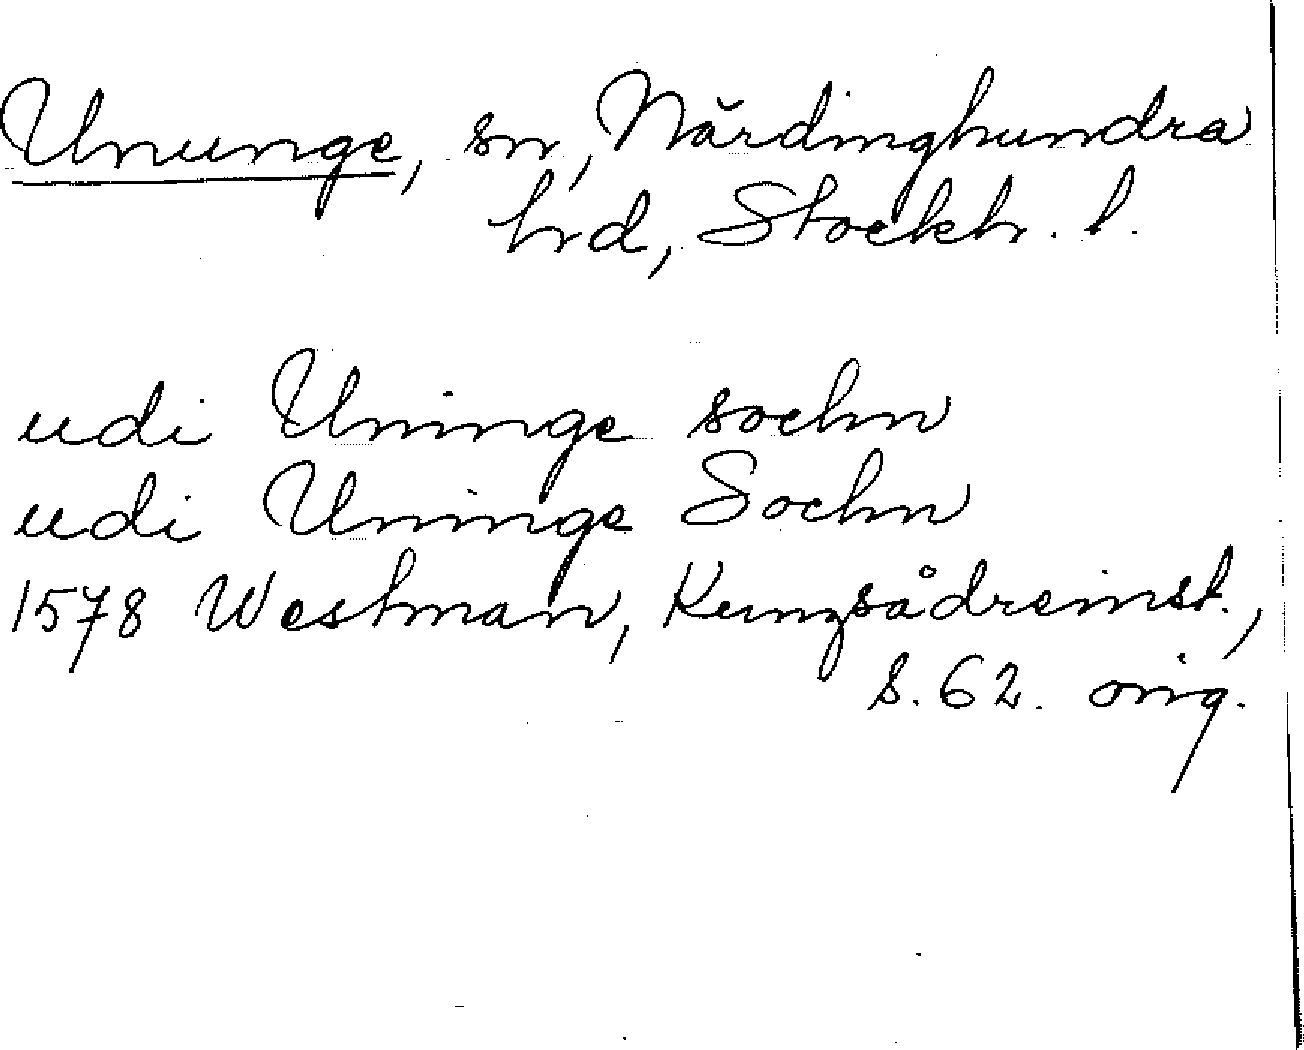 Ununge, sn, Närdinghundra
hrd, Stockh. l.
udi Uninge sochn
udi Uninge Sochn
1578 Westman, Kungsådreinst.,
s. 62. orig.